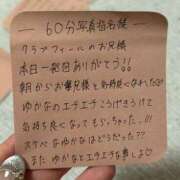 60分写真指名様
クラブフィールのお兄様
本日一発目ありがとう!!
朝からお兄様と気持良くなれた♡
ゆかなのエチエチこうげきうけて
気持ち良くなってもらっちゃった!!!
スケベなゆかなはどうだった??
またゆかなとエチエチな事しよ♡